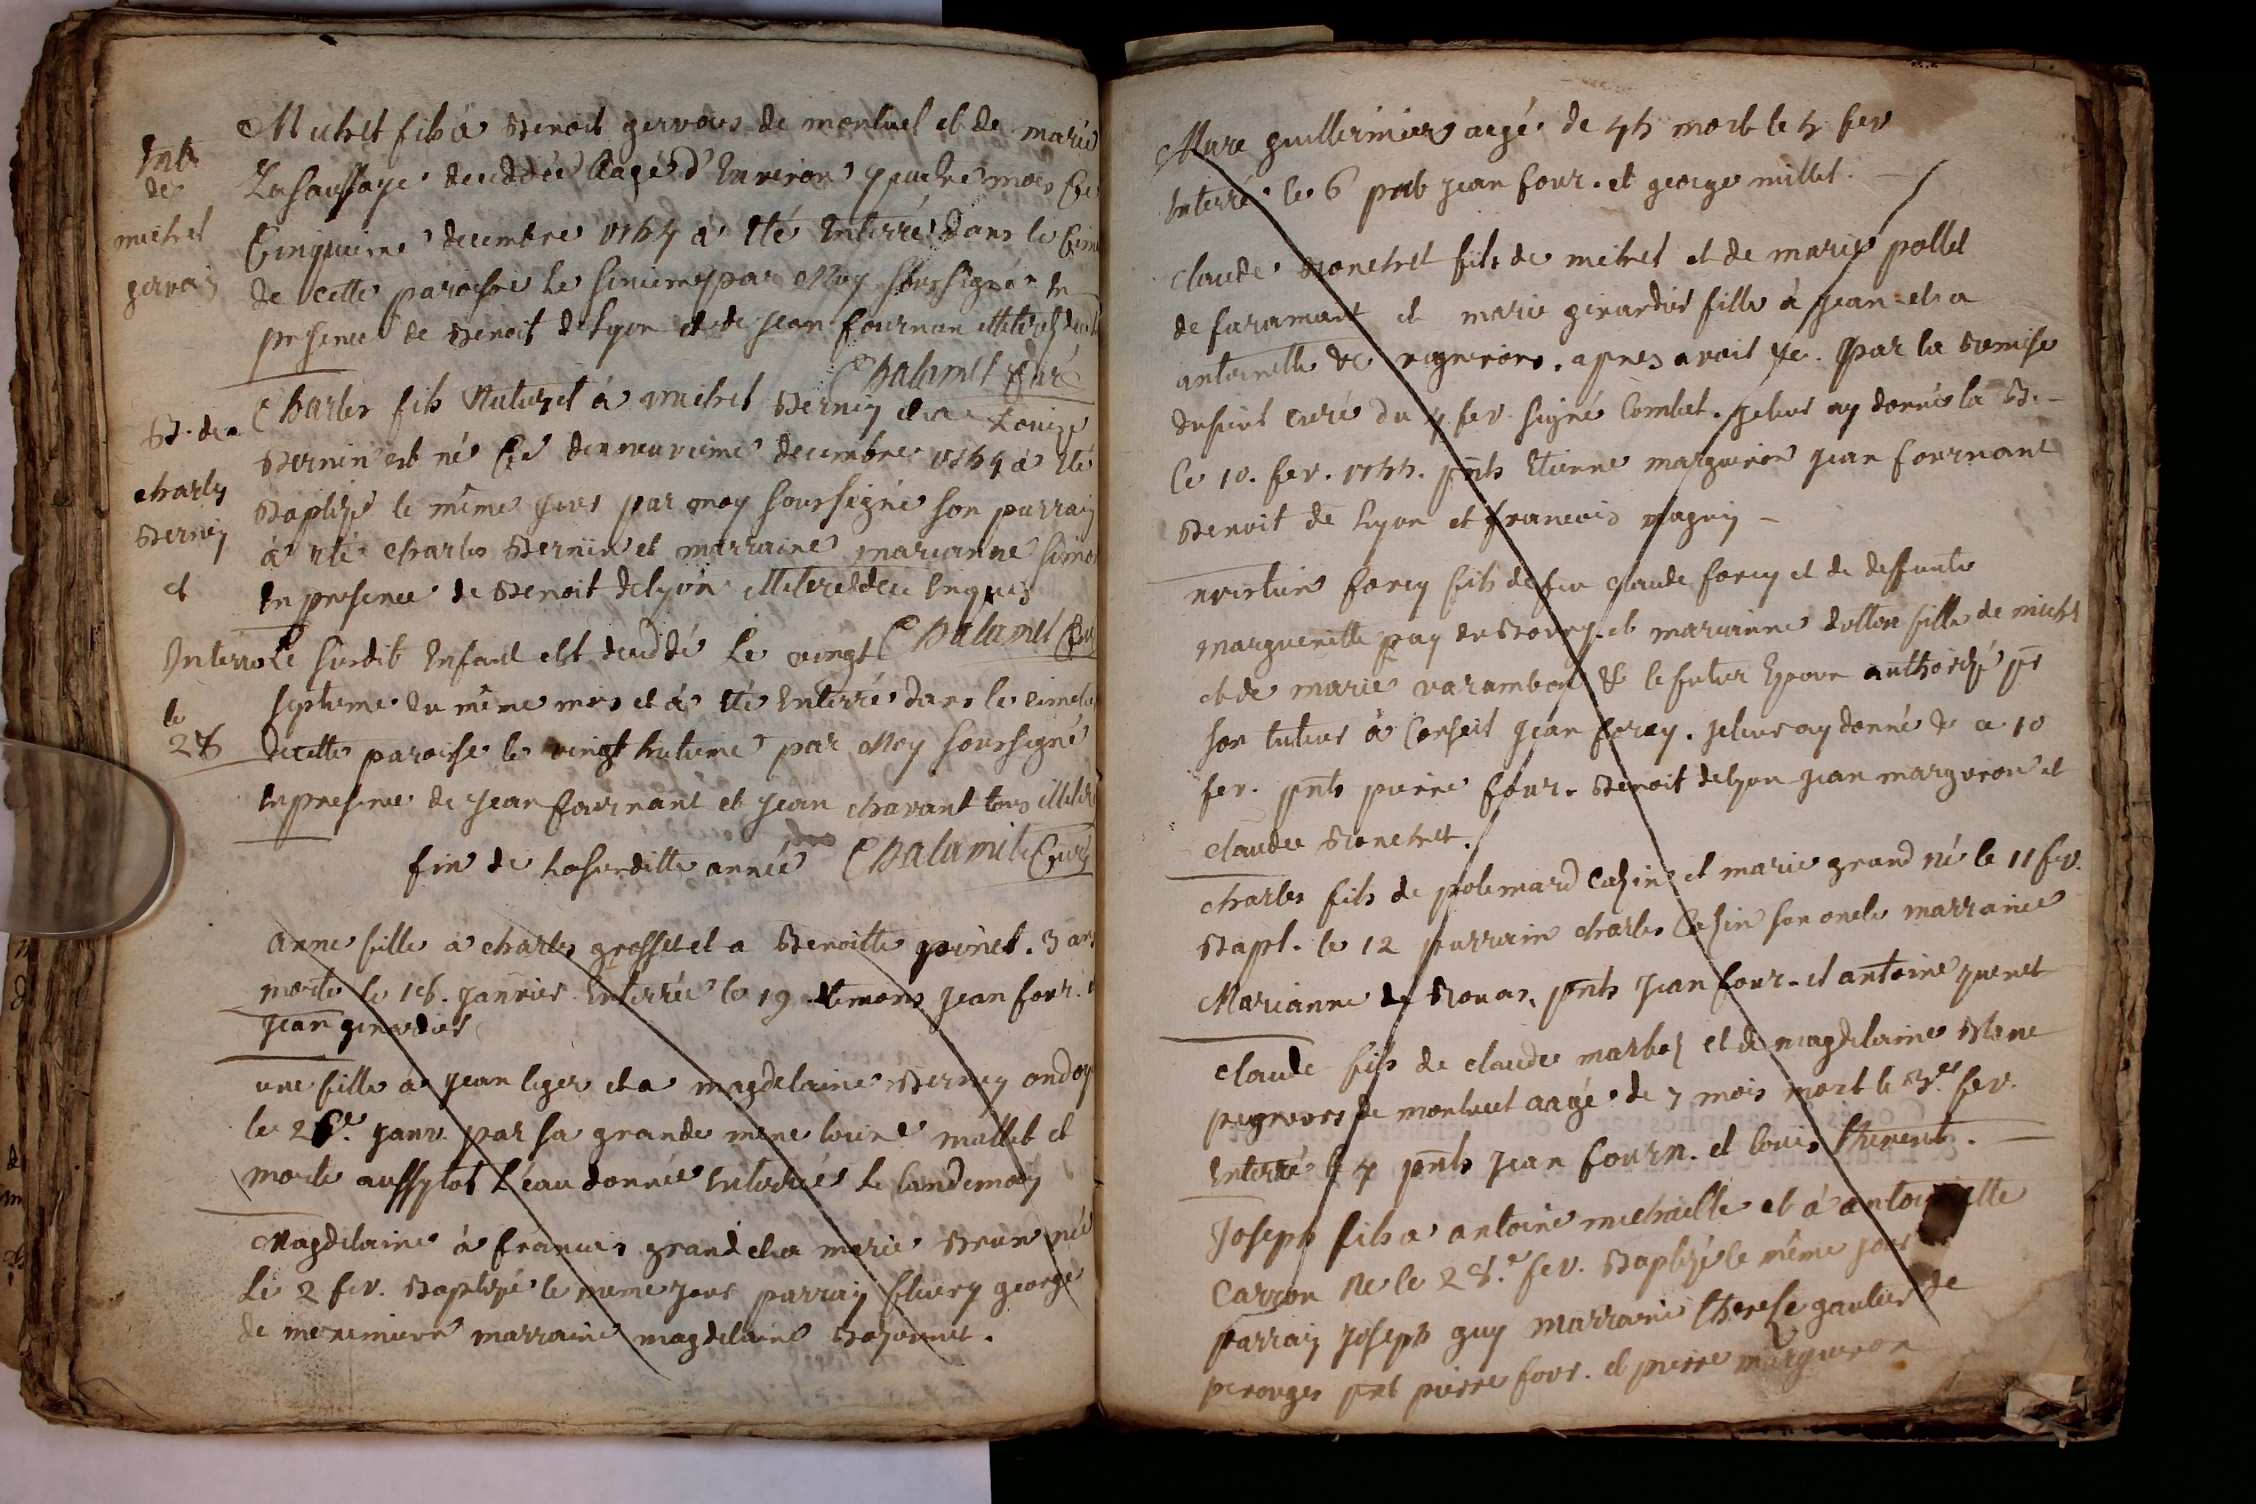 Ent
de
michel
gervais
Michel fils à Benoit gervais de montluel et de marie
Lasaussaye deceddée aagé d'Environ quatre mois Ce
Cinquieme decembre 1754 à été Enterré dans le Cim
de cette paroisse le sixieme par Moy soussigné En
presence de Benoit de Lyon et de jean fournan
Chalamel Curé
B. de
charles
Bernin
et
Charles fils Naturel à michel Bernin et a Louise
Bernin est né Ce dixneuvieme decembre 1754 à été
Baptizé le même jour par moy soussigné son parrain
à été charles Bernin et marraine marianne simon
En presence de Benoit de Lyon illiteré de ce Enquis
Chalamel Curé
Enterré
le
28
Le susdit Enfant est deceddé le vingt
septieme du même mois et à été Enterré dans le cimetie
de cette paroisse le vingt huitieme par Moy soussigné
En presence de jean fournant et jean chavant tous illiteré
fin de la susditte année Chalamel Curé
anne fille à charles grosset et a Benoitte poinet. 3 ans
morte le 18. janvier Enterrée le 19 temoins jean four.
jean girardier
une fille à jean leger et a magdelaine Bernin ondoy
le 26.e janv. par sa grande mere louise mallet et
morte aussytot l'eau donnée Enterrée le landemain
Magdelaine à francois grand et a marie Brun née
le 2 fev. Baptizé le meme jour parrain fleury george
de meximieux marraine magdelaine Bayonnet.
Marc guillermier aagé de 45 mort le 5 fev
Enterré le 6 pnt jean four. et george millet.
Claude Bonchet fils de michel et de marie pollet
de faramant et marie girardier fille à jean et a
antoinette de vignerons. apres avoir &c. par la Remise
du sieur curé du 4 fev signé Combet. je leur ay donné la B.
Ce 10. fev. 1755. pnts Etienne margueron jean fournant
Benoit de Lyon et francois magnin
forey fils de feu claude forey et de deffunte
margueritte pay du Bourg. et marianne dutton fille de michel
et de marie varambon & le futur Epoux authorizé pr
son tuteur à Conseil jean forey. je leur ay donné & ce 10
fev. pnts pierre four. Benoit de Lyon jean margueron et
claude Bonchet.
charles fils de polemard Cazin et marie grand né le 11 fev.
Bapt. le 12 parrain charles Cazin son oncle marraine
Marianne de Bonar, pnts jean four. et antoine quenet
claude fils de claude marbos et de magdelaine Blanc
de montluel aagé de 7 mois mort le 3.e fev.
Enterré le 4 pnts jean fourn. et louis thenent.
Joseph fils a antoine michaille et à antoinette
Carron Né le 28.e fev. Baptizé le même jour
parrain joseph guy marraine therese gautier de
perouges pnt pierre four. et pierre margueron